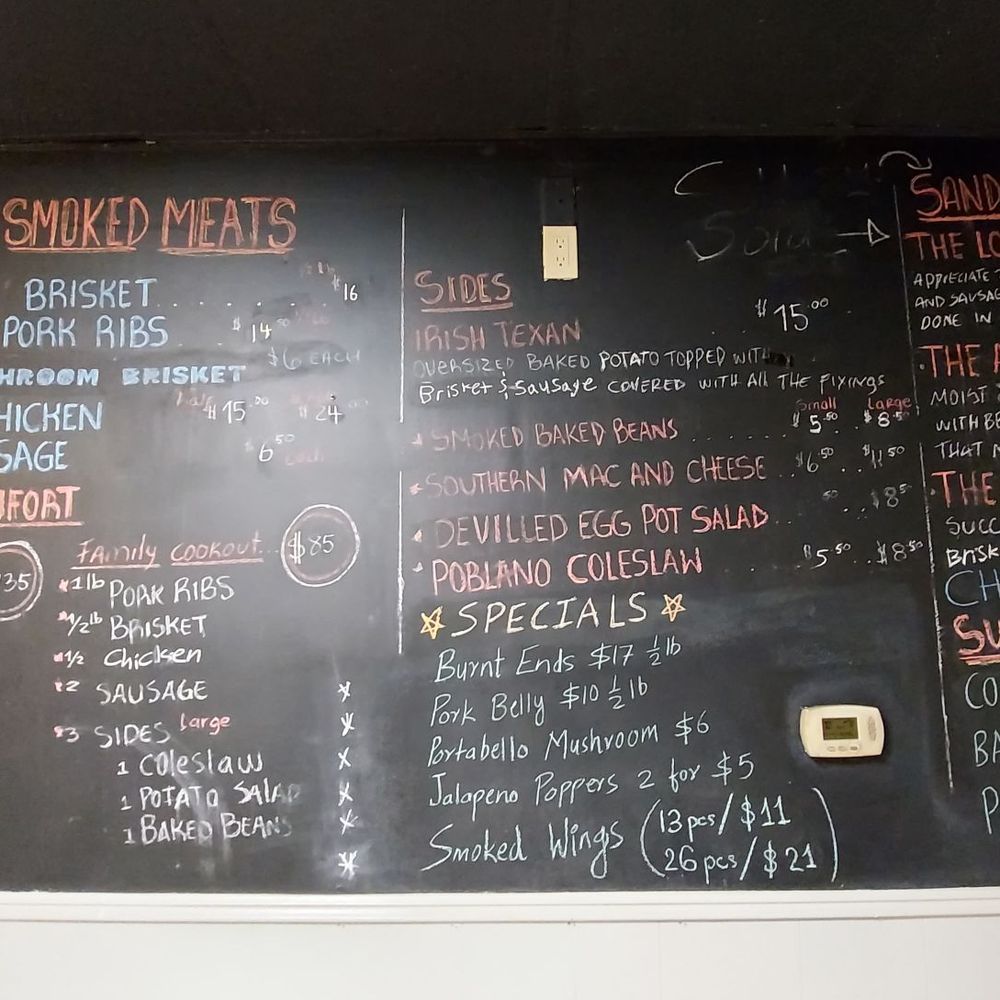 SMOKED MEATS
BRISKET $16
PORK RIBS $14.50
$6 EACH
HROOM BRISKET
HICKEN half $15.00 $24
SAGE $6.50 each
FORT
35
Family cookout... $85
1lb PORK RIBS
1/2lb BRISKET
1/2 Chicken
2 SAUSAGE
3 SIDES large
1 Coleslaw
1 POTATO SALAD
1 BAKED BEANS
Sold
SIDES
IRISH TEXAN $15.00
OVERSIZED BAKED POTATO TOPPED WITH
Brisket & Sausage COVERED WITH All THE FIXINGS
Small Large
SMOKED BAKED BEANS $5.50 $8.50
SOUTHERN MAC AND CHEESE $6.50 $11.50
DEVILLED EGG POT SALAD .50 $8.50
POBLANO COLESLAW $5.50 $8.50
SPECIALS
Burnt Ends $17 1/2 lb
Pork Belly $10 1/2 lb
Portabello Mushroom $6
Jalapeno Poppers 2 for $5
Smoked Wings (13pcs/$11
26pcs/$21)
SAND
THE LO
APPRECIATE
AND SAUSAG
DONE IN
THE
MOIST
WITH BE
THAT
THE
SUCC
BRISK
CH
SU
CO
BA
P